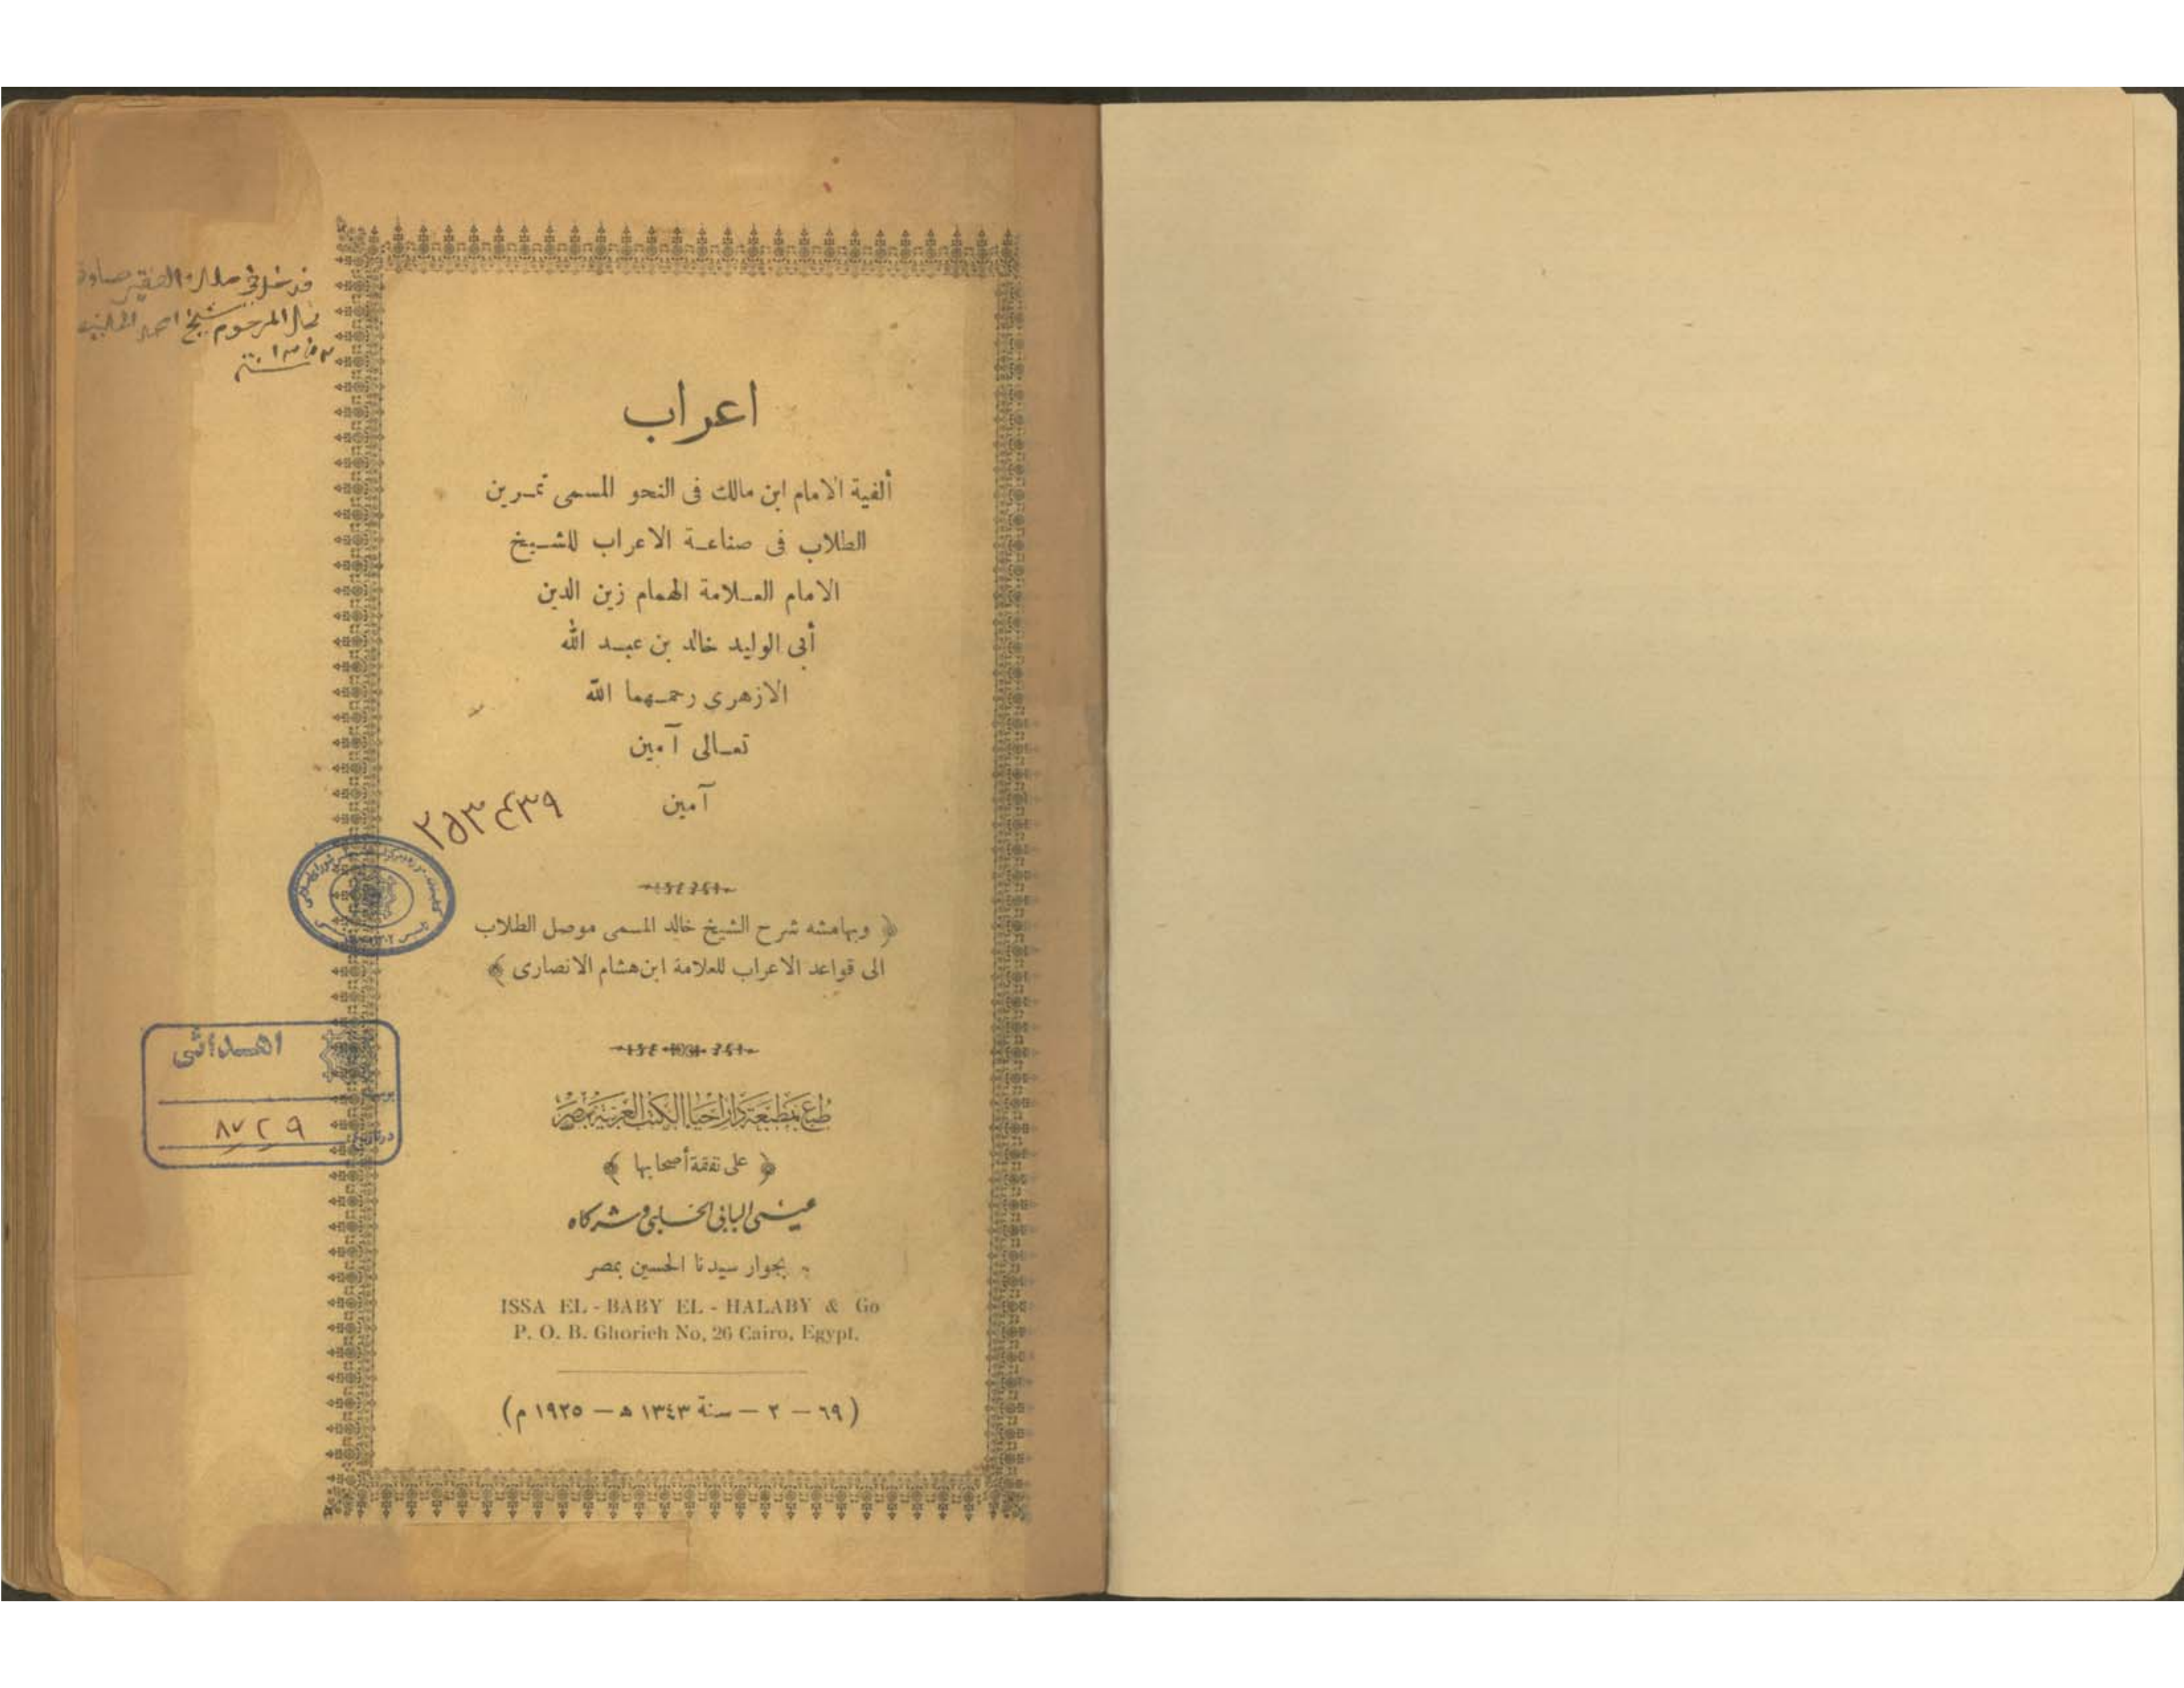 اعراب
ألفية الامام ابن مالك فى النحو المسمى تمـرين
الطلاب فى صناعـة الاعراب للشـيخ
الامام العـلامة الهمام زين الدين
أبى الوليد خالد بن عبـد الله
الازهرى رحمـهما الله
تعـالى آمين
آمين
٢٥٣٤٣٩
﴿ وبهامشه شرح الشيخ خالد المسمى موصل الطلاب
الى قواعد الاعراب للعلامة ابن هشام الانصارى ﴾
اهـدائى
٨٧٢٩
طبع بمطبعة دار احياء الكتب العربية بمصر
﴿ على نفقة أصحابها ﴾
عيسى البابى الحلبى وشركاه
بجوار سيدنا الحسين بمصر
ISSA EL - BABY EL - HALABY & Go
P. O. B. Ghorieh No, 26 Cairo, Egypt.
(٦٩ — ٢ — سنة ١٣٤٣ ه — ١٩٢٥ م)